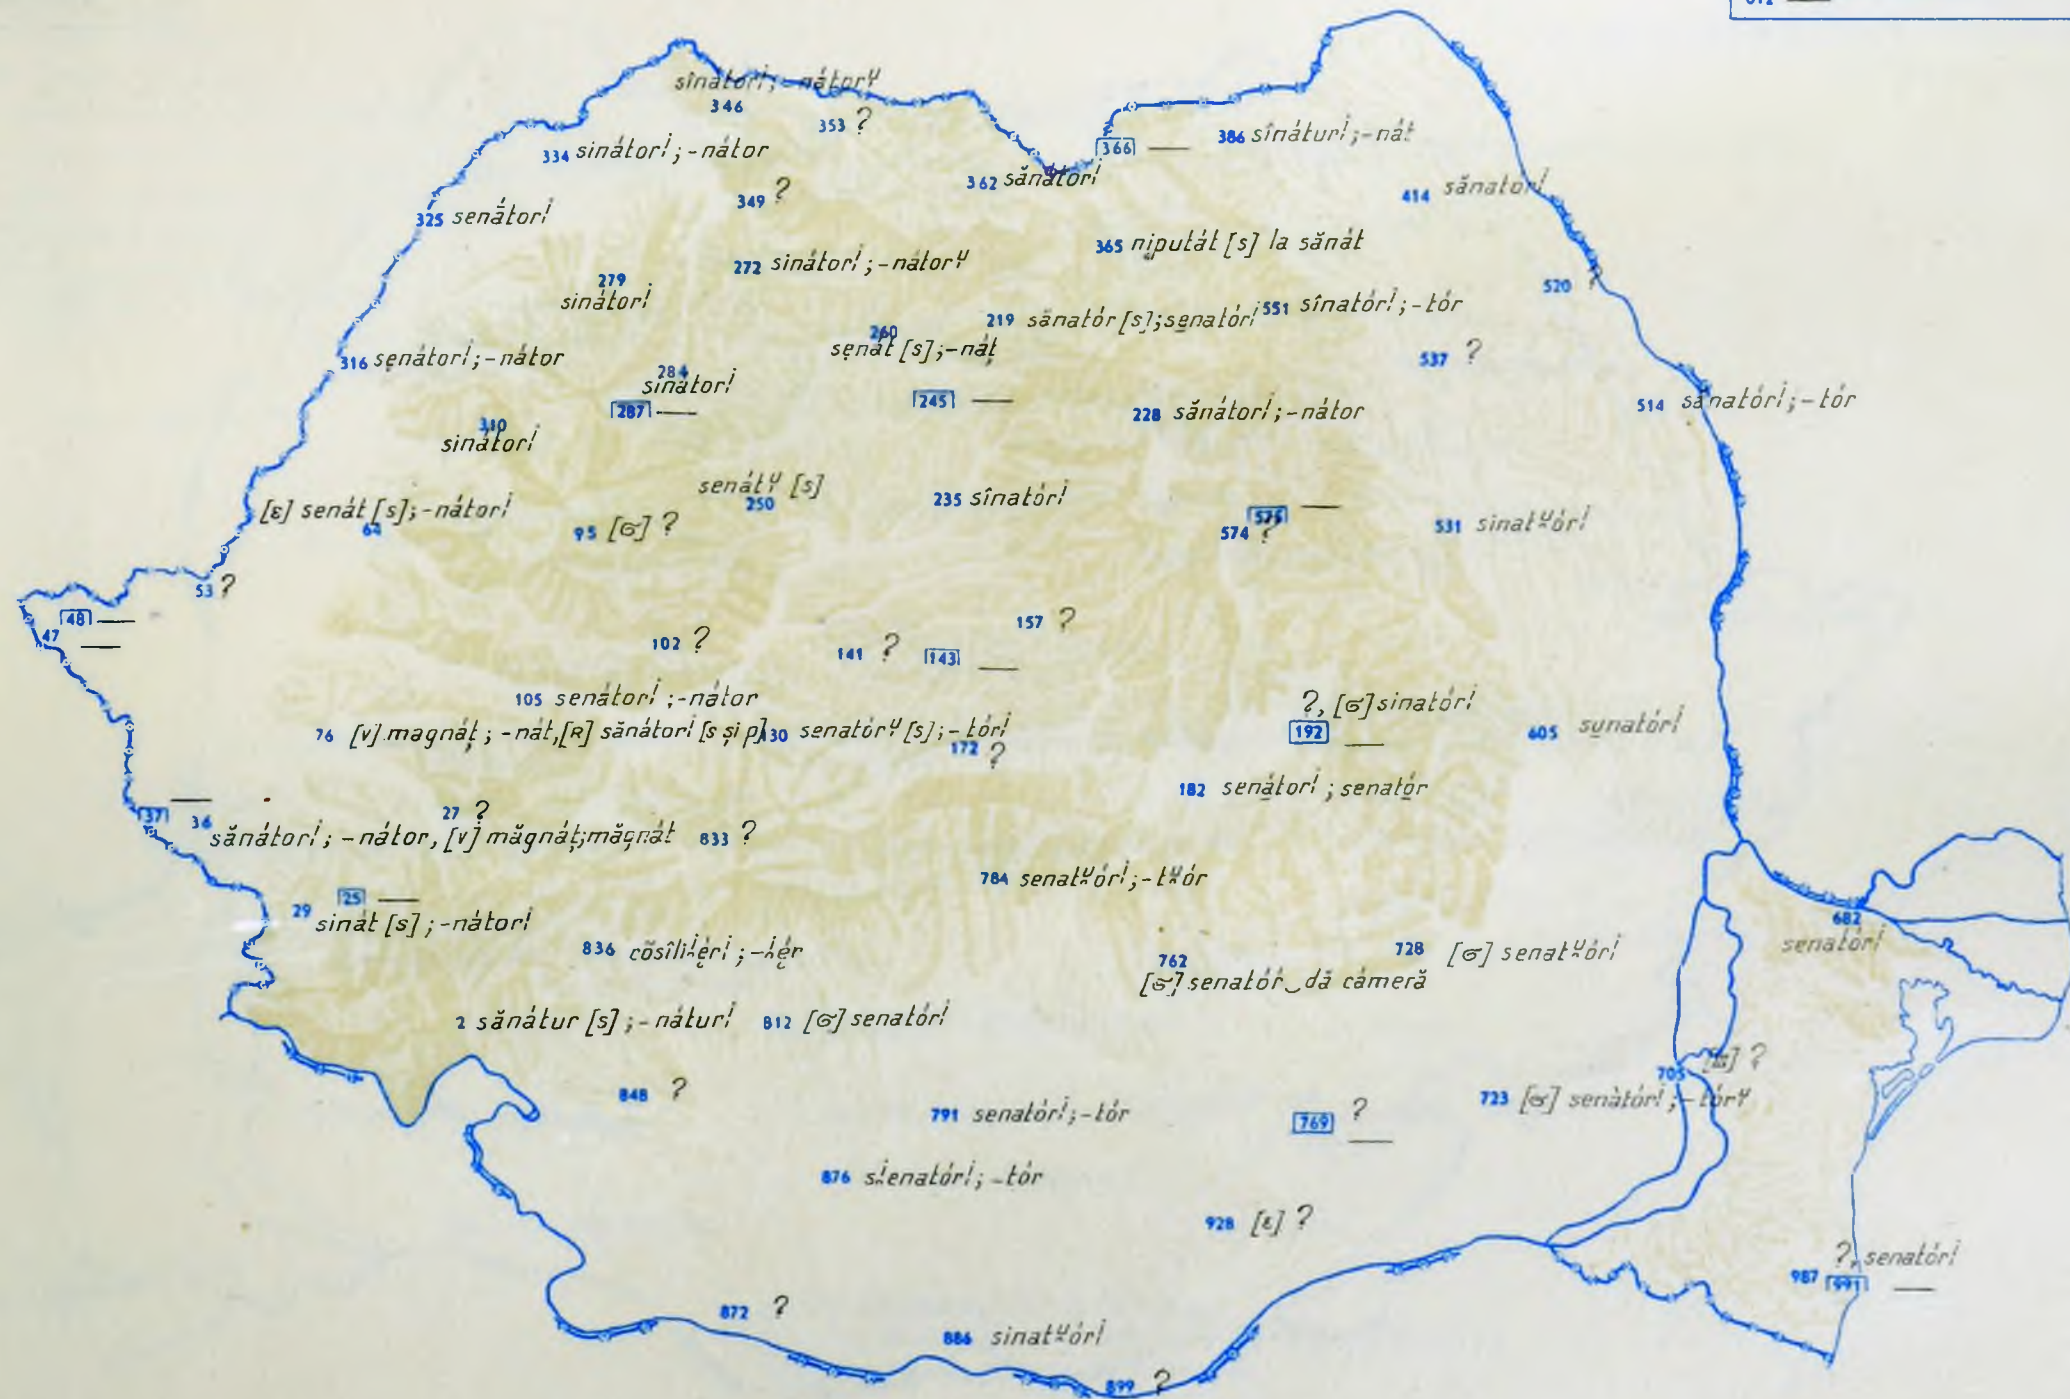 sînátorĭ; -nátorᵘ
346
353 ?
334 sinátorĭ; -nátor
366 —
386 sînáturĭ; -nát
362 sănátorĭ
349 ?
414 sănatorĭ
325 senátorĭ
365 niputát [s] la sănát
272 sinátorĭ; -nátorᵘ
279
sinátorĭ
520 ?
219 sănatór [s]; senatórĭ
551 sînatórĭ; -tór
260
senát [s]; -náț
316 senátorĭ; -nátor
537 ?
284
sinátorĭ
287 —
245 —
228 sănátorĭ; -nátor
514 sănatórĭ; -tór
310
sinátorĭ
senátᵘ [s]
250
235 sînatórĭ
[ε] senát [s]; -nátorĭ
64
95 [σ] ?
575 —
574 ?
531 sinatᵘórĭ
53 ?
48 —
47 —
157 ?
102 ?
141 ?
143 —
105 senátorĭ; -nátor
?, [σ] sinatórĭ
192 —
76 [v] magnáț; -nát, [R] sănátorĭ [s și p]
130 senatórᵘ [s]; -tórĭ
172 ?
605 sunatórĭ
182 senátorĭ; senatór
37 —
27 ?
36 sănátorĭ; -nátor, [v] măgnáț; măgnát
833 ?
784 senatᵘórĭ; -tᵘór
25 —
29 sinát [s]; -nátorĭ
836 cõsiliĭérĭ; -ĭér
762
[σ] senatór‿dă cámeră
728 [σ] senatᵘórĭ
682
senatórĭ
2 sănátur [s]; -náturĭ
812 [σ] senatórĭ
705 ?
848 ?
791 senatórĭ; -tór
769 ?
—
723 [σ] senàtórĭ; -tórᵘ
876 sĭenatórĭ; -tór
928 [ε] ?
?, senatórĭ
987 991 —
872 ?
886 sinatᵘórĭ
899 ?